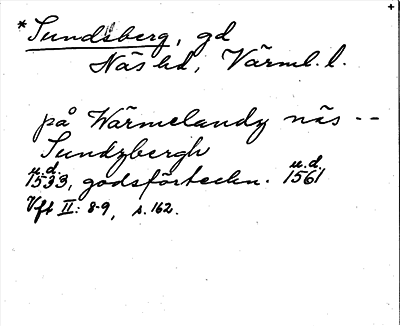 +
*Sundsberg, gd
Näs hd, Värml. l.
på Wärmelandz näs --
Sundzbergh
u.d. u.d.
1533, godsförteckn. 1561
Vft II: 8-9, s. 162.